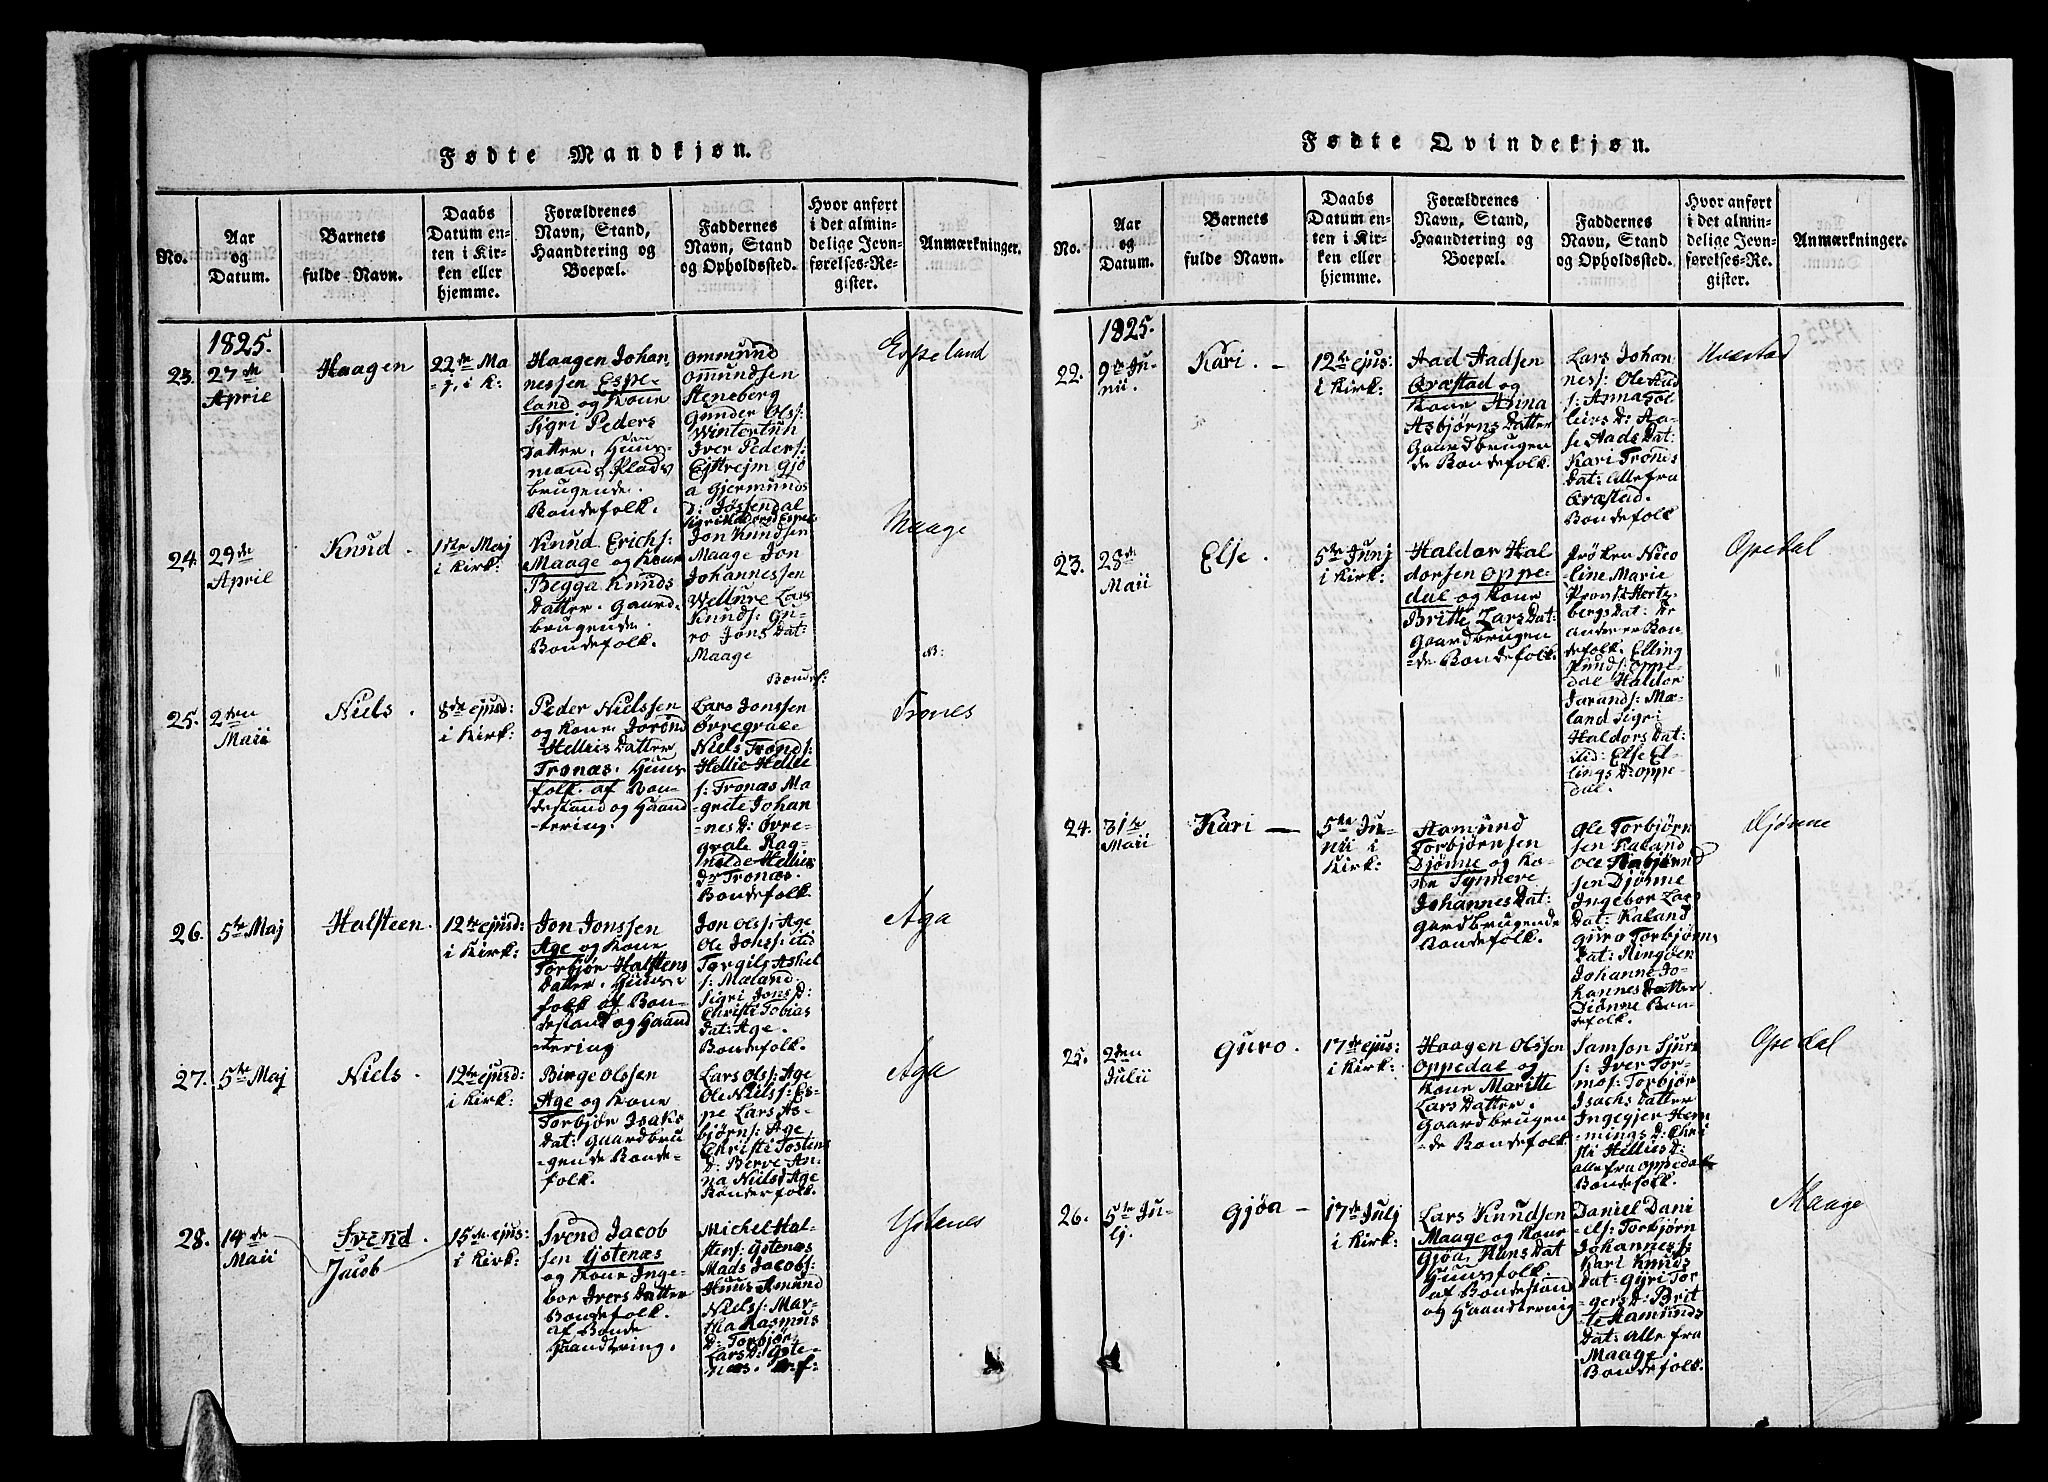 Fødte Mandkjøn.
No.
Aar
og
Datum.
Barnets
fulde Navn.
Daabs
Datum en-
ten i Kir-
ken eller
hjemme.
Forældrenes
Navn, Stand,
Haandtering og
Boepæl.
Faddernes
Navn, Stand
og Opholdssted.
Hvor anført
i det almin-
delige Jevn-
førelses-Re-
gister.
Anmærkninger.
1825.
23.
27de
April
Haagen
22de Ma-
j, i K:
Haagen Johan-
nessen Espe-
land og Kone
Sigri Peders
Datter, Huus-
mands Plads
brugende.
Bondefolk.
Ommund
Ommundsen
Steneberg
Gunder Ols:
Wintertun
Iver Peders:
Eittrejm Gjø
a Gjermunds
D: Jøssendal
Espeland
24.
29de
April
Knud.
1ste Maj
i Kirk:
Knud Erichs:
Maage og Kone
Begga Knuds
Datter. Gaard-
brugende.
Bondefolk.
Jon Knudsen
Maage Jon
Johannessen
Wellure Lars
Knuds: Gu-
ro Jons Dat:
Maage
Bondef:
Maage
B:
25.
2den
Maii
Niels.
8de ejusd:
i Kirk:
Peder Nielssen
og Kone Jorond
Hellies Datter
Tronæs. Huus
folk af Bon-
destand og Haand
tering.
Lars Jonssen
Øvregrale
Niels Tronds:
Hellie Hellie
s: Tronæs Ma-
grete Johan-
nes D: Øvre-
grale Rag-
nilde Hellies
Dr Tronæs.
Bondefolk.
Trones
26.
5te Maj
Halsteen.
12te ejusd:
i Kirk:
Jon Jonssen
Age og Kone
Torbjør Halstens
Datter. Huus-
folk af Bon-
destand og Haand
tering
Jon Olss: Age
Ole Johss: itid
Torgils Askel
s: Maland
Sigri Jons D:
Christi Tobias
Dat: Age.
Bondefolk.
Aga
27.
5te Maj
Niels.
12te ejusd:
i Kirk:
Birge Olssen
Age og Kone
Torbjør Isaks
Dat: Gaardbru
gende Bonde-
folk.
Lars Olss: Age
Ole Nielss: Es-
pe Lars As-
bjørns: Age
Christi Tostens
D: Berve An-
na Niels D Age
Bønderfolk.
Aga
28.
14de
Maii
Svend
Jacob
15de ejus:
i Kirk:
Svend Jacob
sen Ystenæs
og Kone Inge-
bor Ivers Datter
Bondefolk.
af Bonde
Haandtering.
Michel Hal-
stens: Ystenæs
Mads Jacobs:
Huus Amund
Nielss: Mar-
tha Rasmus
D: Torbjør
Lars D: Yste-
næs. B.f:
Ystenes
Fødte Qvindekjøn.
No.
Aar
og
Datum.
Barnets
fulde Navn.
Daabs
Datum en-
ten i Kir-
ken eller
hjemme.
Forældrenes
Navn, Stand,
Haandtering og
Boepæl.
Faddernes
Navn, Stand
og Opholdssted.
Hvor anført
i det almin-
delige Jevn-
førelses-Re-
gister.
Anmærkninger.
1825.
22.
9de Ju-
nii.
Kari. —
12te ejus:
i Kirk:
Aad Aadsen
Qvæstad og
Kone Anna
Asbjørns Datter
Gaardbrugen
de Bondefolk.
Lars Johan
nes: Ole Aad
s: Anna
D: Aa-
se Aads Dat:
Kari Trønis
Dat: Alle fra
Qvæstad.
Bondefolk
23.
28de
Maii
Else.
5te Junj
i Kirk:
Haldor Hal
dorsen Oppe-
dal og Kone
Britte Lars Dat:
Gaardbrugen
de Bondefolk.
Frøken Nico
line Marie
Provst Hertz
bergs Dat: De
andre er Bon-
defolk. Elling
Knuds: Oppe-
dal Haldor
Jarands: Mæ-
land Sigri
Haldors Dat:
itid: Else El-
lings D: Oppe-
dal.
Opedal
24.
31te
Maii
Kari —
5te Ju-
nii i
Kirk:
Aamund
Torbjørnsen
Djønne og Ko-
ne Synneve
Johannes Dat:
Gaardbrugende
Bondefolk.
Ole Torbjørn
sen Kaland
Ole
sen Djønne
Ingebor Lars
Dat: Kaland
Guro Torbjørns
Dat: Ringøen
Johanne Jo-
hannes Datter
Djønne Bon
defolk.
Djønne
25.
2den
Julii
Guro.
17de ejus:
i Kirk:
Haagen Olssen
Oppedal og
Kone Maritte
Lars Datter.
Gaardbrugen
de Bondefolk.
Samson Sjurs
s: Iver Tor-
mos: Torbjør
Isachs Datter
Ingegjer Hem
mings D: Chri
sti Hellies D:
alle fra Oppedal
Bondefolk.
Opedal
26.
5te Ju-
lj.
Gjøa —
17de Julj
i Kirk:
Lars Knudsen
Maage og Kone
Gjøa Hans Dat
Huusfolk.
af Bondestand
og Haandtering
Daniel Dani
els: Torbjørn
Johanness:
Kari Knuds
Dat: Gyri Tor-
gers D: Brit-
te Aamunds
Dat: Alle fra
Maage
Bondefolk.
Maage